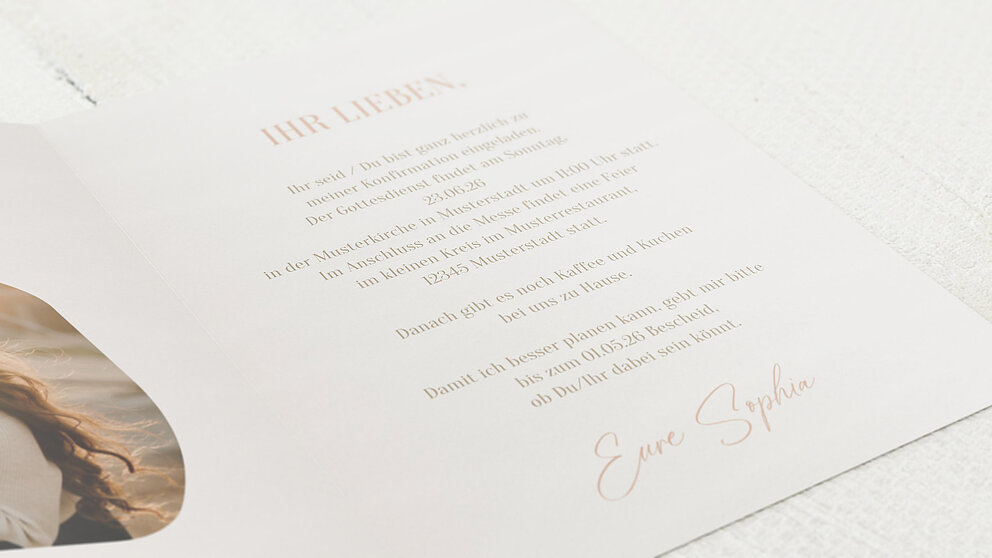 IHR LIEBEN,
Ihr seid / Du bist ganz herzlich zu
meiner Konfirmation eingeladen.
Der Gottesdienst findet am Sonntag,
23.06.26
in der Musterkirche in Musterstadt um 11:00 Uhr statt.
Im Anschluss an die Messe findet eine Feier
im kleinen Kreis im Musterrestaurant,
12345 Musterstadt statt.
Danach gibt es noch Kaffee und Kuchen
bei uns zu Hause.
Damit ich besser planen kann, gebt mir bitte
bis zum 01.05.26 Bescheid,
ob Du/Ihr dabei sein könnt.
Eure Sophia